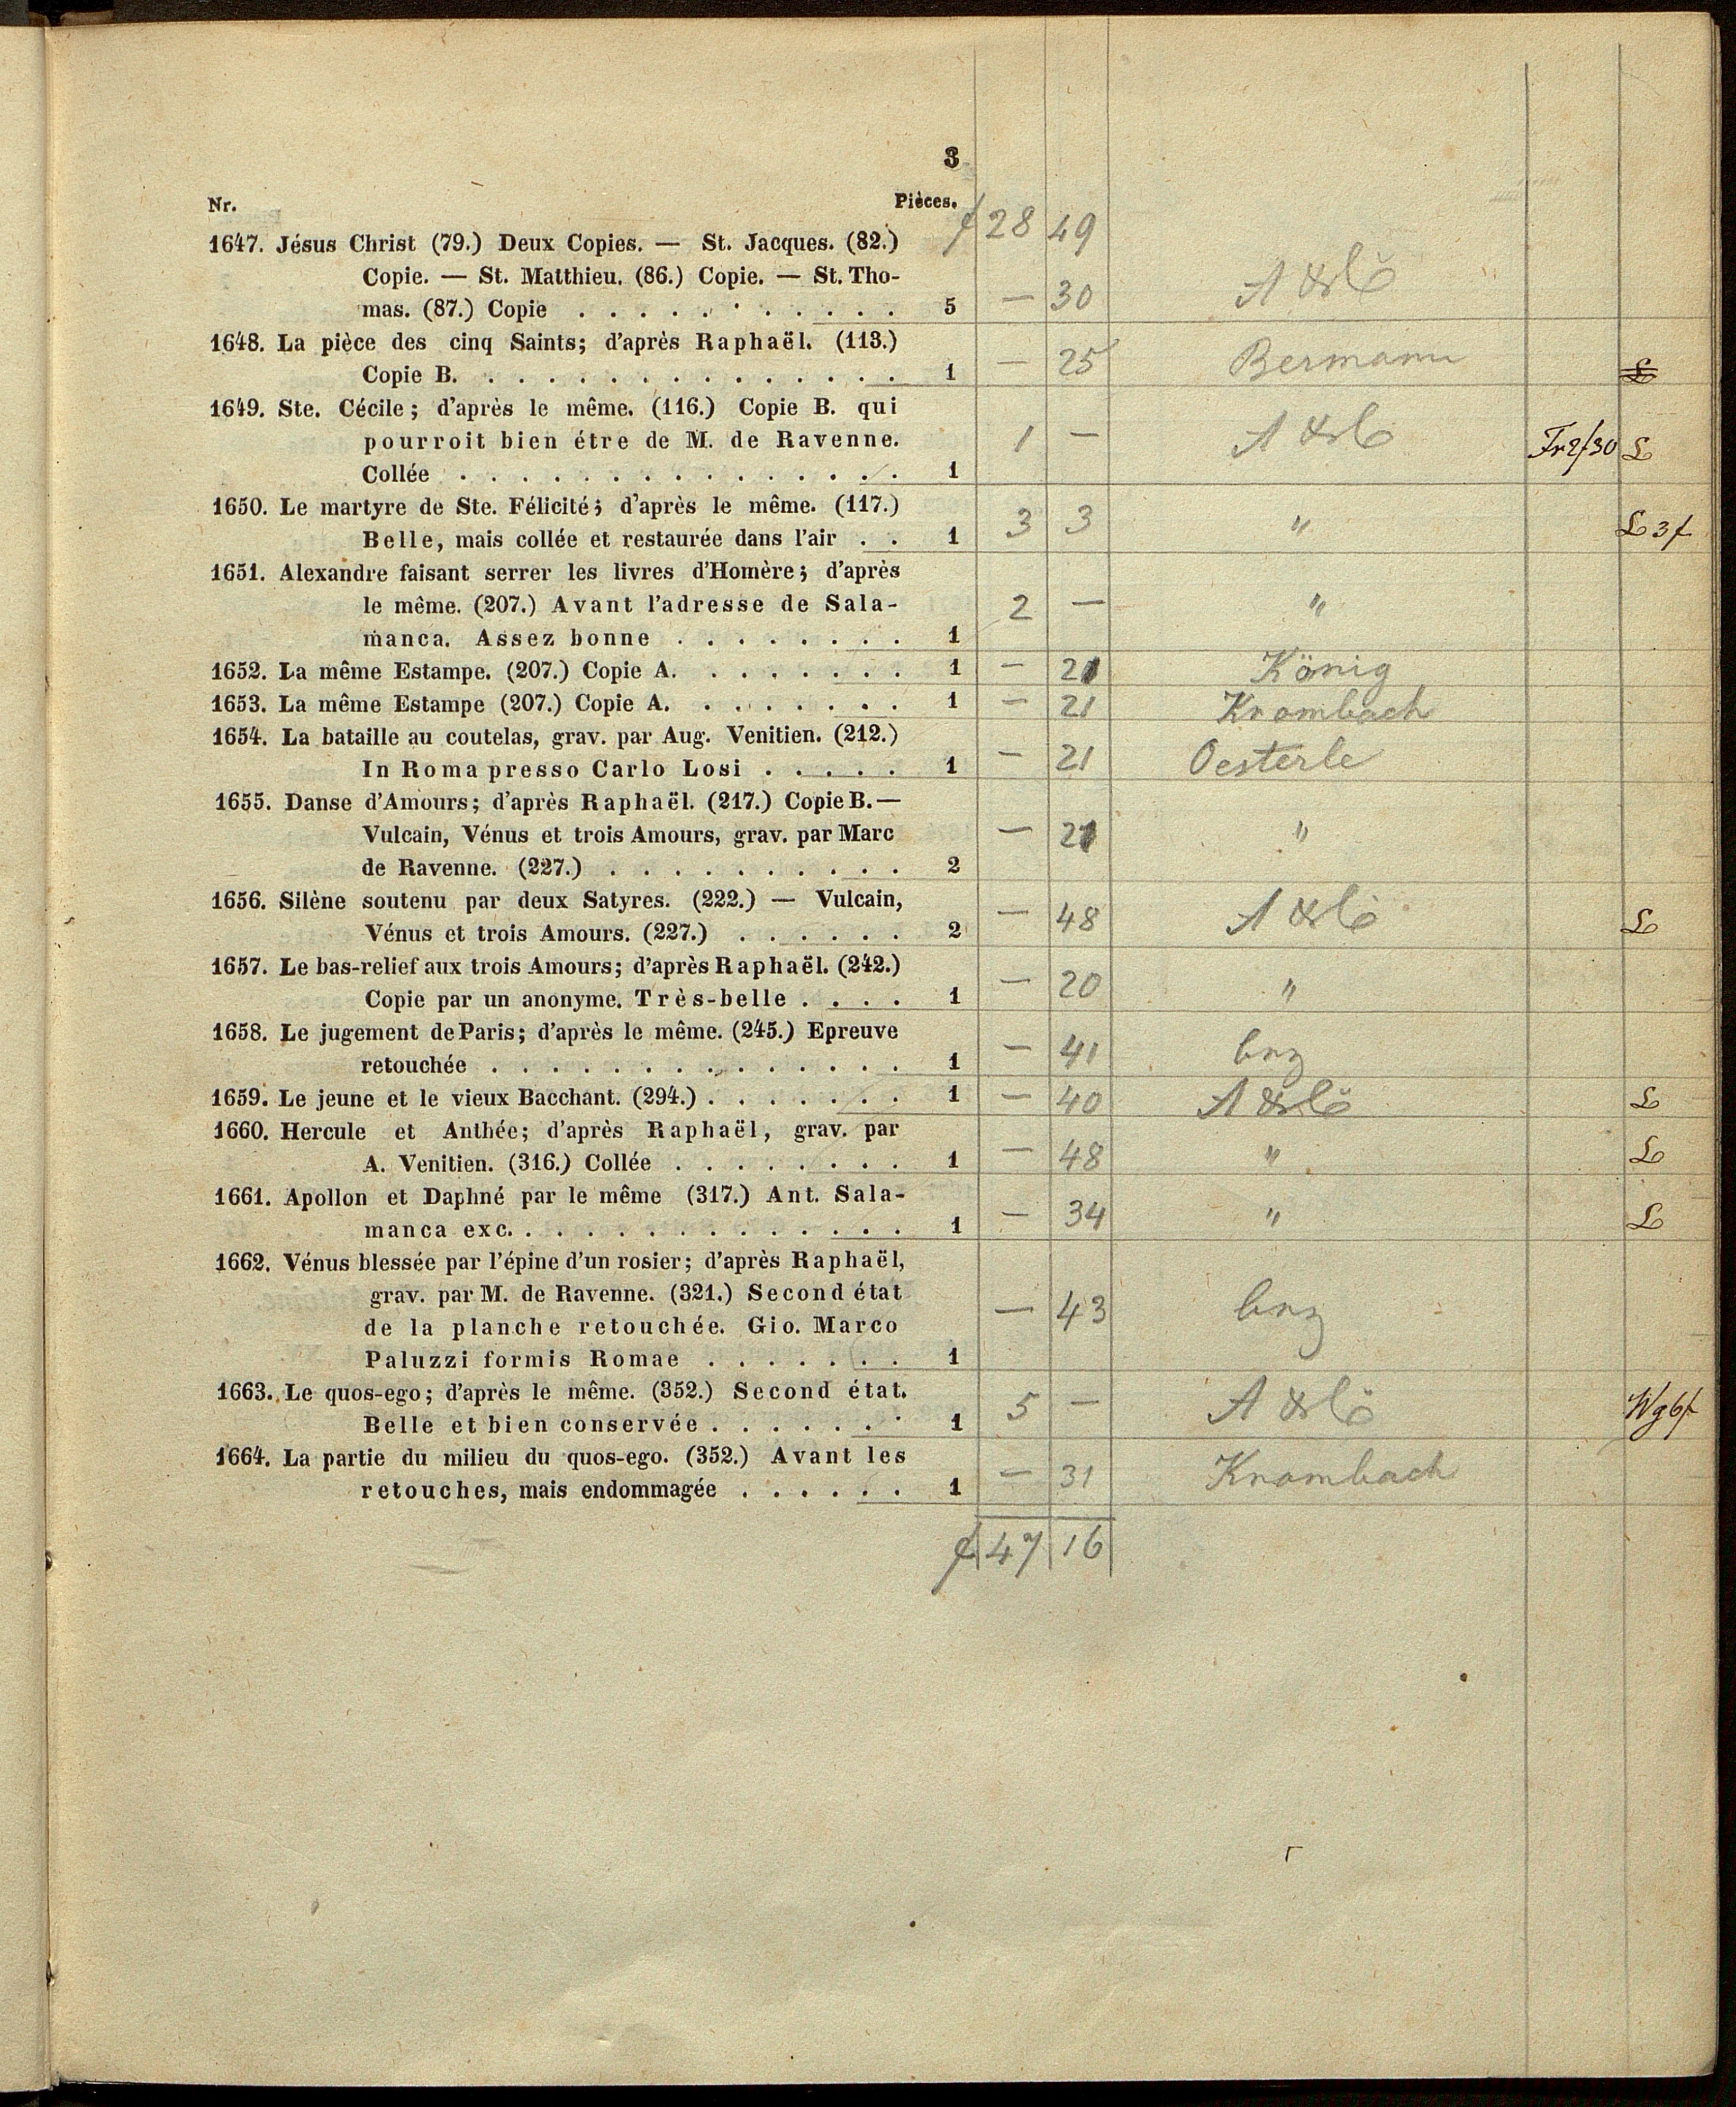 3
Nr. Pièces.
f 28 49
1647. Jésus Christ (79.) Deux Copies. — St. Jacques. (82.)
Copie. — St. Matthieu. (86.) Copie. — St. Tho-
mas. (87.) Copie . . . . . . . . . . . 5 — 30
1648. La pièce des cinq Saints; d'après Raphaël. (113.)
Copie B. . . . . . . . . . . . . . . . 1 — 25 Bermann
1649. Ste. Cécile; d'après le même. (116.) Copie B. qui
pourroit bien étre de M. de Ravenne. 1 — Fr 2f30 L
Collée . . . . . . . . . . . . . . . 1
1650. Le martyre de Ste. Félicité; d'après le même. (117.)
Belle, mais collée et restaurée dans l'air . . 1 3 3 " L 3f
1651. Alexandre faisant serrer les livres d'Homère; d'après
le même. (207.) Avant l'adresse de Sala- 2 — "
manca. Assez bonne . . . . . . . . 1
1652. La même Estampe. (207.) Copie A. . . . . . . . 1 — 21 König
1653. La même Estampe (207.) Copie A. . . . . . . . 1 — 21 Krombach
1654. La bataille au coutelas, grav. par Aug. Venitien. (212.)
In Roma presso Carlo Losi . . . . . 1 — 21 Oesterle
1655. Danse d'Amours; d'après Raphaël. (217.) Copie B. —
Vulcain, Vénus et trois Amours, grav. par Marc — 21 "
de Ravenne. (227.) . . . . . . . . . . 2
1656. Silène soutenu par deux Satyres. (222.) — Vulcain,
Vénus et trois Amours. (227.) . . . . . . 2 — 48 L
1657. Le bas-relief aux trois Amours; d'après Raphaël. (242.)
Copie par un anonyme. Très-belle . . . . 1 — 20 "
1658. Le jugement de Paris; d'après le même. (245.) Epreuve
retouchée . . . . . . . . . . . . . . 1 — 41
1659. Le jeune et le vieux Bacchant. (294.) . . . . . . . 1 — 40 L
1660. Hercule et Anthée; d'après Raphaël, grav. par
A. Venitien. (316.) Collée . . . . . . . . 1 — 48 " L
1661. Apollon et Daphné par le même (317.) Ant. Sala-
manca exc. . . . . . . . . . . . . . 1 — 34 " L
1662. Vénus blessée par l'épine d'un rosier; d'après Raphaël,
grav. par M. de Ravenne. (321.) Second état
de la planche retouchée. Gio. Marco — 43
Paluzzi formis Romae . . . . . . . 1
1663. Le quos-ego; d'après le même. (352.) Second état.
Belle et bien conservée . . . . . . . 1 5 — Wg 6f
1664. La partie du milieu du quos-ego. (352.) Avant les
retouches, mais endommagée . . . . . . 1 — 31 Krombach
f 47 16